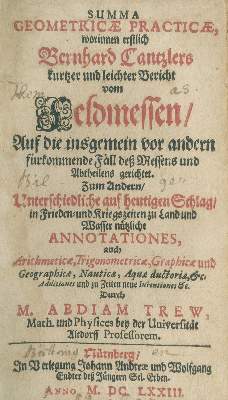 SUMMA
GEOMETRICÆ PRACTICÆ,
worinnen erstlich
Bernhard Cantzlers
kurtzer und leichter Bericht
vom
Feldmessen/
Auf die insgemein vor andern
fürkommende Fäll deß Messens und
Abtheilens gerichtet.
Zum Andern/
Unterschiedliche auf heutigen Schlag/
in Frieden und Kriegszeiten zu Land und
Wasser nützliche
ANNOTATIONES,
auch
Arithmeticæ, Trigonometricæ, Graphicæ und
Geographicæ, Nauticæ, Aquæ ductoriæ, &c.
Additiones und zu Zeiten neue Inventiones &c.
Durch
M. ABDIAM TREW,
Math. und Physices bey der Universität
Altdorff Professorem.
Nürnberg/
In Verlegung Johann Andreæ und Wolfgang
Endter deß Jüngern Sel. Erben.
ANNO, M. DC. LXXIII.